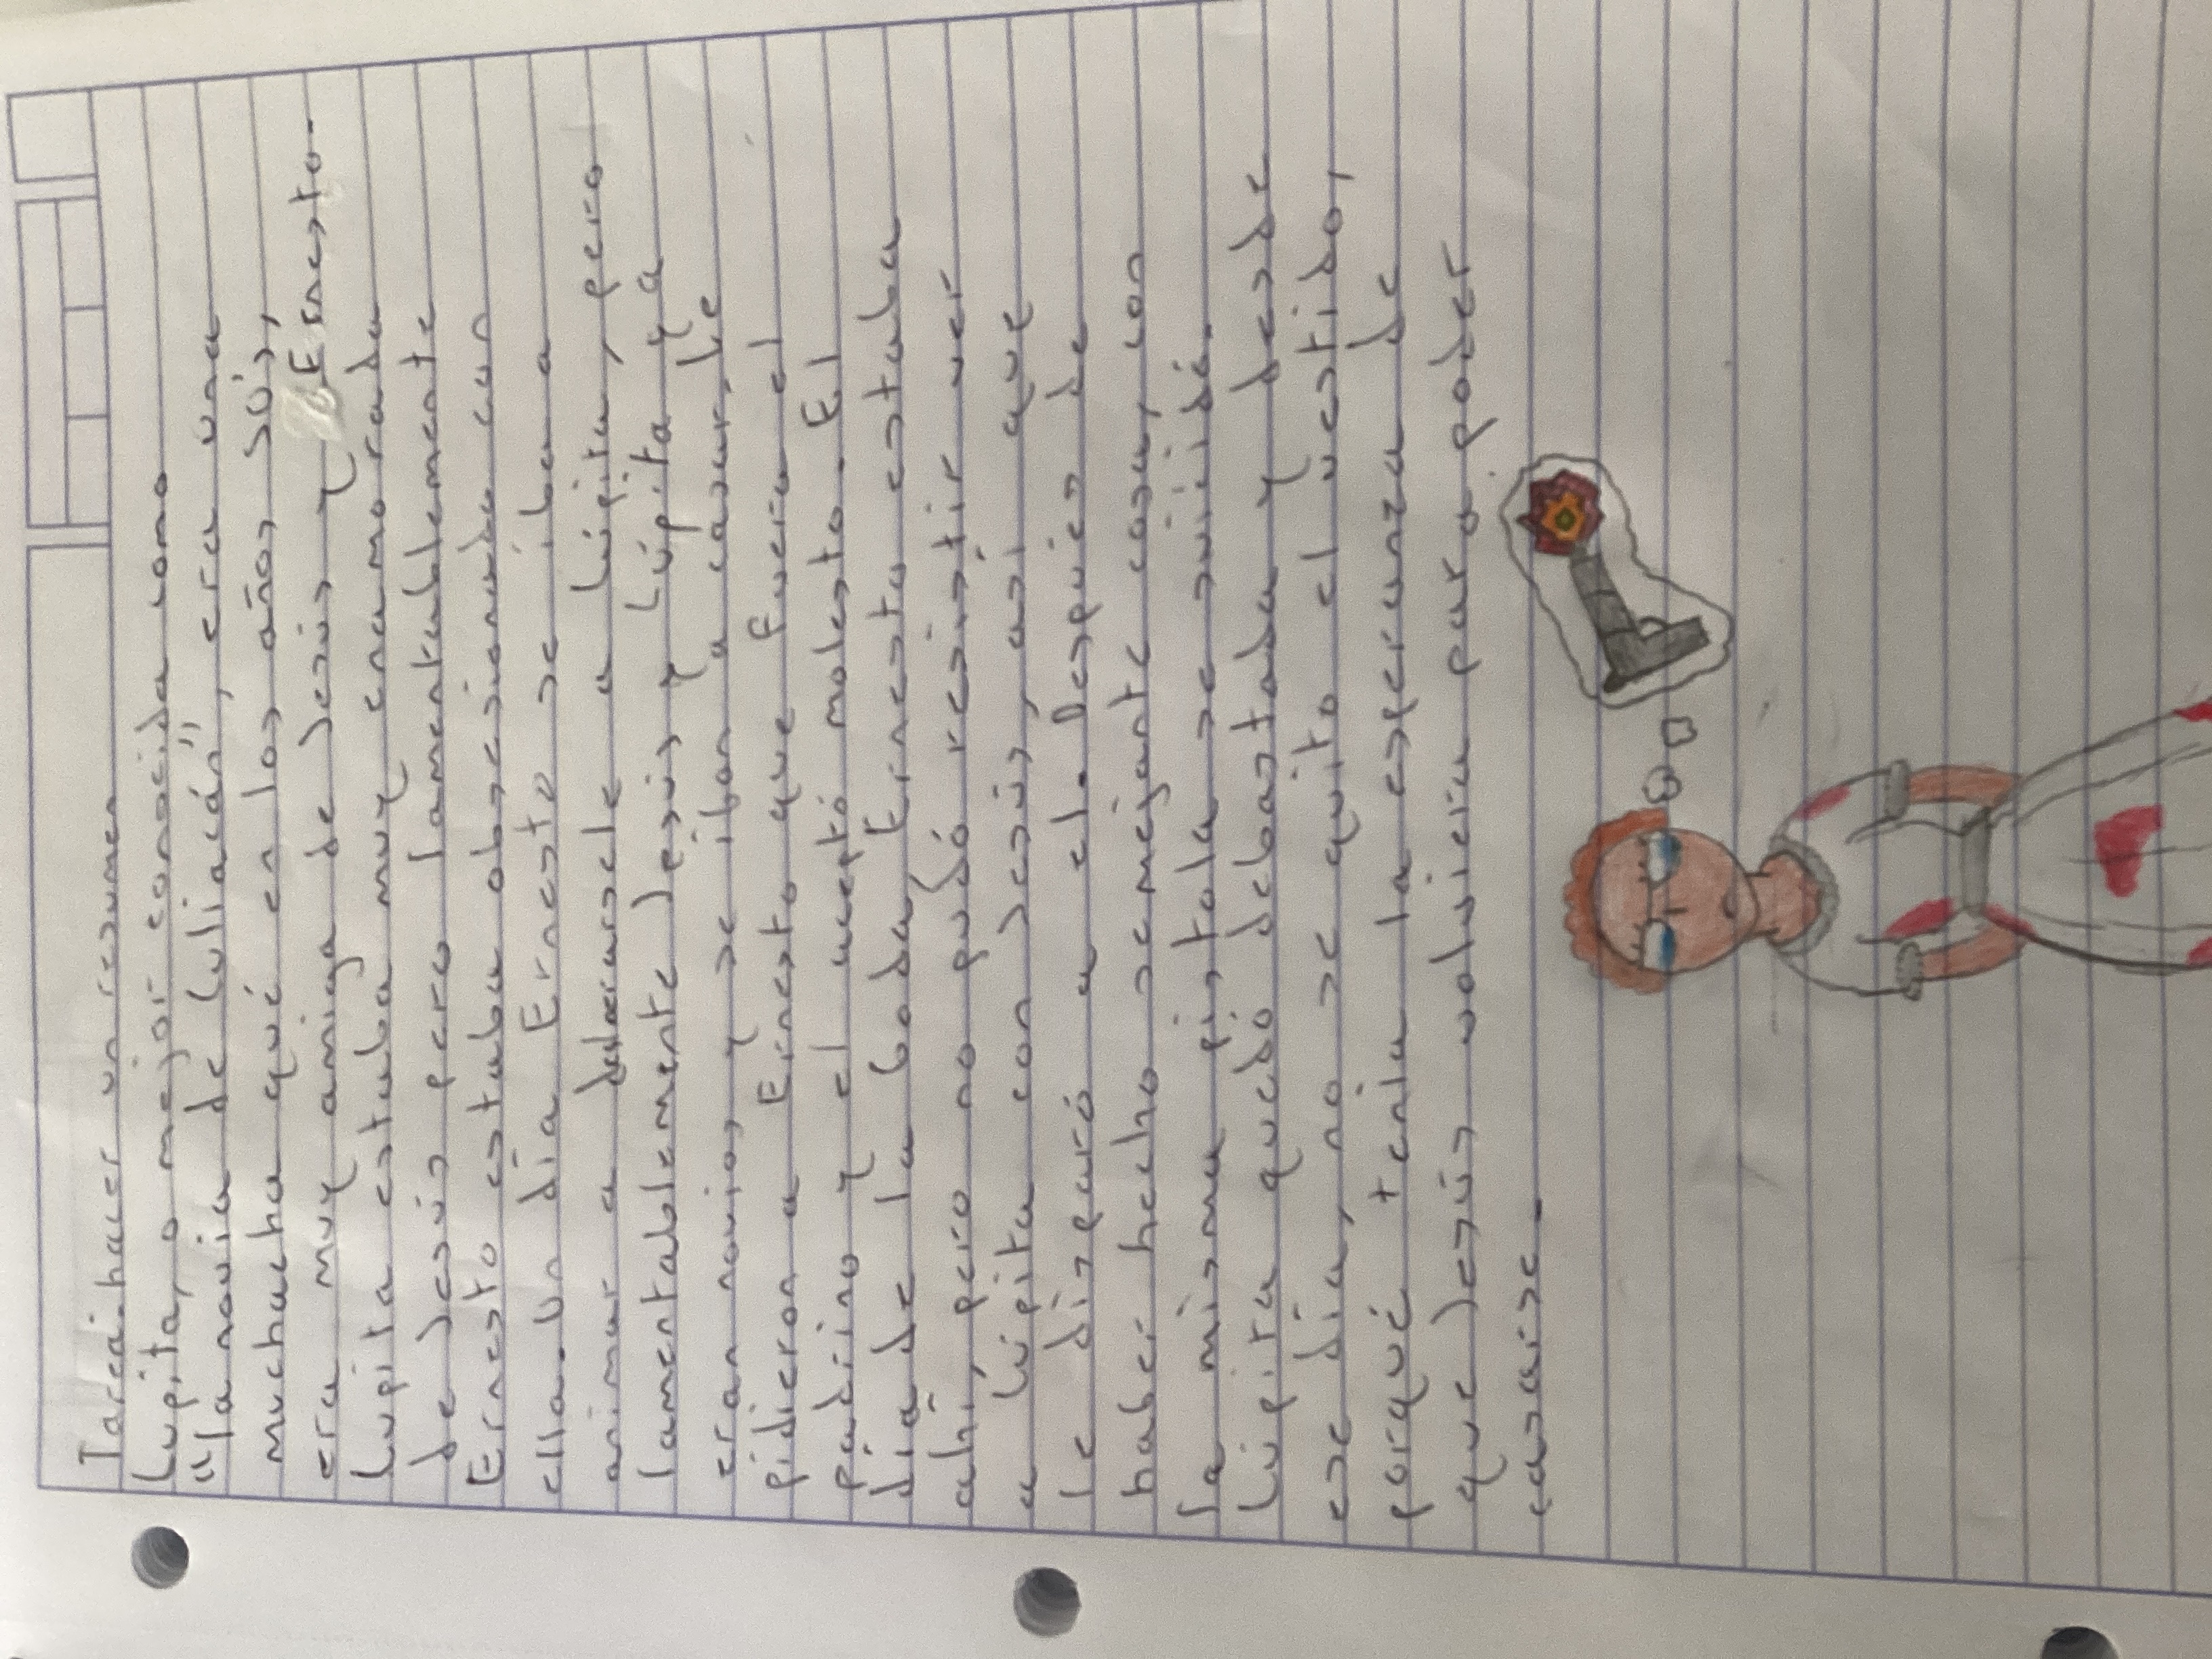 Tarea: hacer un resumen
Lupita, o mejor conocida como
"la novia de Culiacán", era una
muchacha qué en los años 50's,
era muy amiga de Jesús y Ernesto.
Lupita estaba muy enamorada
de Jesús pero lamentablemente
Ernesto estaba obsesionado con
ella. Un día Ernesto se iba a
animar a declararsele a Lúpita, pero
lamentablemente Jesús y Lúpita ya
eran novios y se iban a casar, le
pidieron a Ernesto que fuera el
padrino y el aceptó molesto. El
día de la boda, Ernesto estaba
ahí, pero no pudó resistir ver
a Lúpita con Jesús, así que
le disparó a el. Después de
haber hecho semejante cosa, con
la misma pistola se suicidó.
Lúpita quedó debastada y desde
ese día, no se quito el vestido,
porqué tenía la esperanza de
que Jesús volviera para poder
casarse.